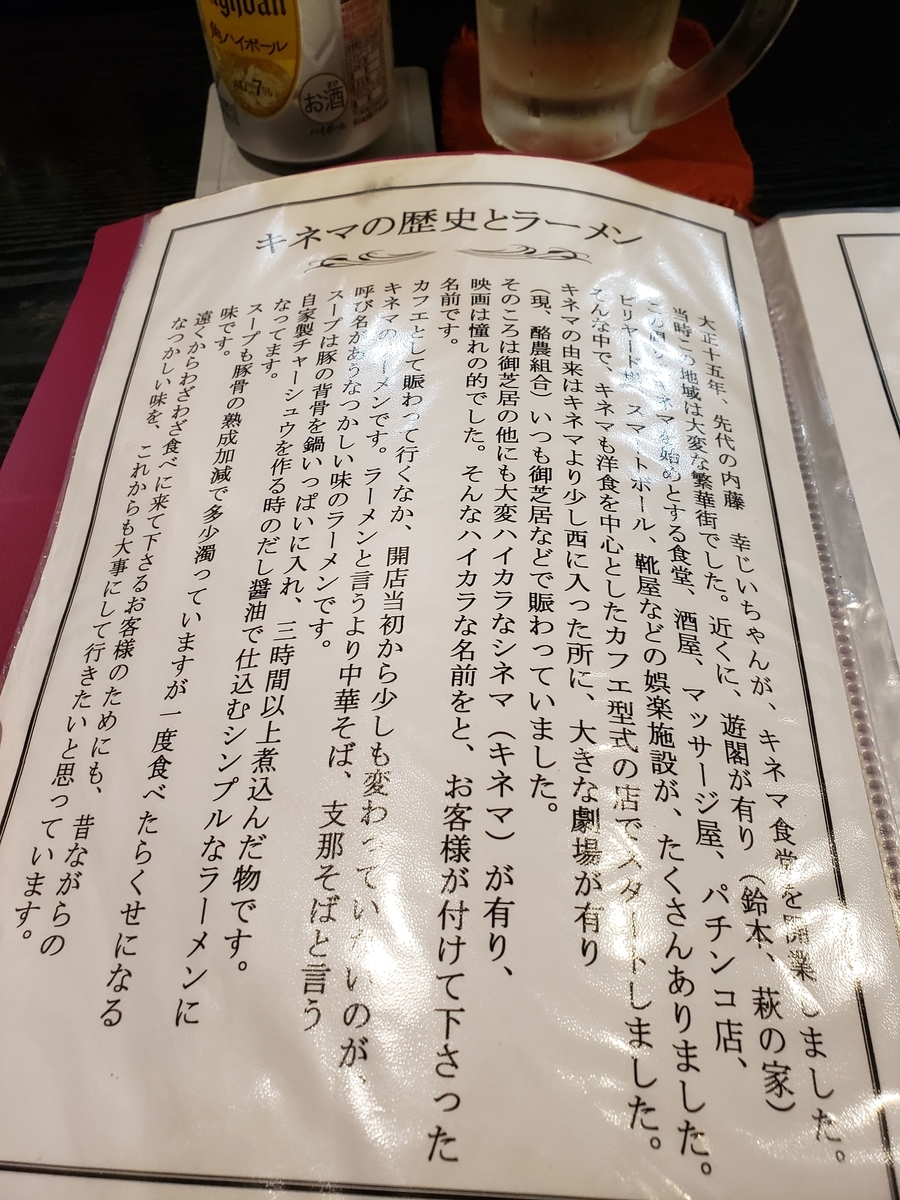 角ハイボール
7%
お酒
ハイボール
キネマの歴史とラーメン
大正十五年、先代の内藤 幸じいちゃんが、キネマ食堂を開業しました。
当時この地域は大変な繁華街でした。近くに、遊閣が有り（鈴木、萩の家）
この間、キネマを始めとする食堂、酒屋、マッサージ屋、パチンコ店、
ビリヤード場、スマートボール、靴屋などの娯楽施設が、たくさんありました。
そんな中で、キネマも洋食を中心としたカフェ型式の店でスタートしました。
キネマの由来はキネマより少し西に入った所に、大きな劇場が有り
（現、酪農組合）いつも御芝居などで賑わっていました。
そのころは御芝居の他にも大変ハイカラなシネマ（キネマ）が有り、
映画は憧れの的でした。そんなハイカラな名前をと、お客様が付けて下さった
名前です。
カフェとして賑わって行くなか、開店当初から少しも変わっていないのが、
キネマのラーメンです。ラーメンと言うより中華そば、支那そばと言う
呼び名があうなつかしい味のラーメンです。
スープは豚の背骨を鍋いっぱいに入れ、三時間以上煮込んだ物です。
自家製チャーシュウを作る時のだし醤油で仕込むシンプルなラーメンに
なってます。
スープも豚骨の熟成加減で多少濁っていますが一度食べたらくせになる
味です。
遠くからわざわざ食べに来て下さるお客様のためにも、昔ながらの
なつかしい味を、これからも大事にして行きたいと思っています。